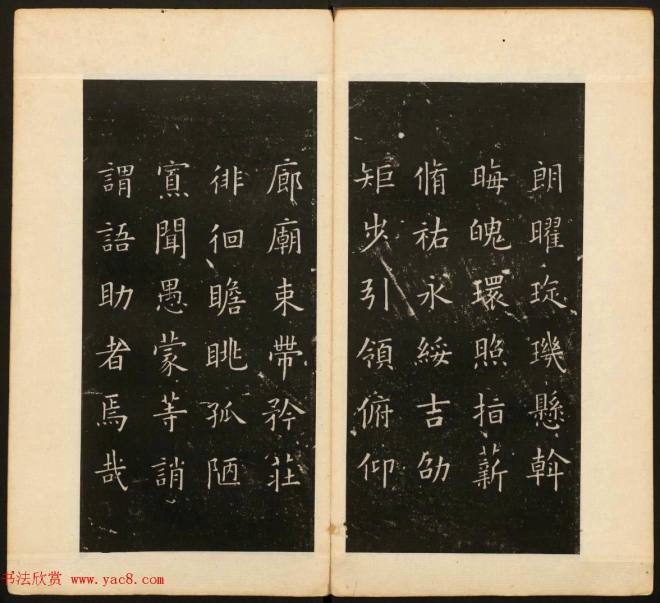 朗曜琁璣懸斡
晦魄環照指薪
脩祐永綏吉劭
矩步引領俯仰
廊廟束帶矜莊
徘徊瞻眺孤陋
寡聞愚蒙等誚
謂語助者焉哉
书法欣赏 www.yac8.com